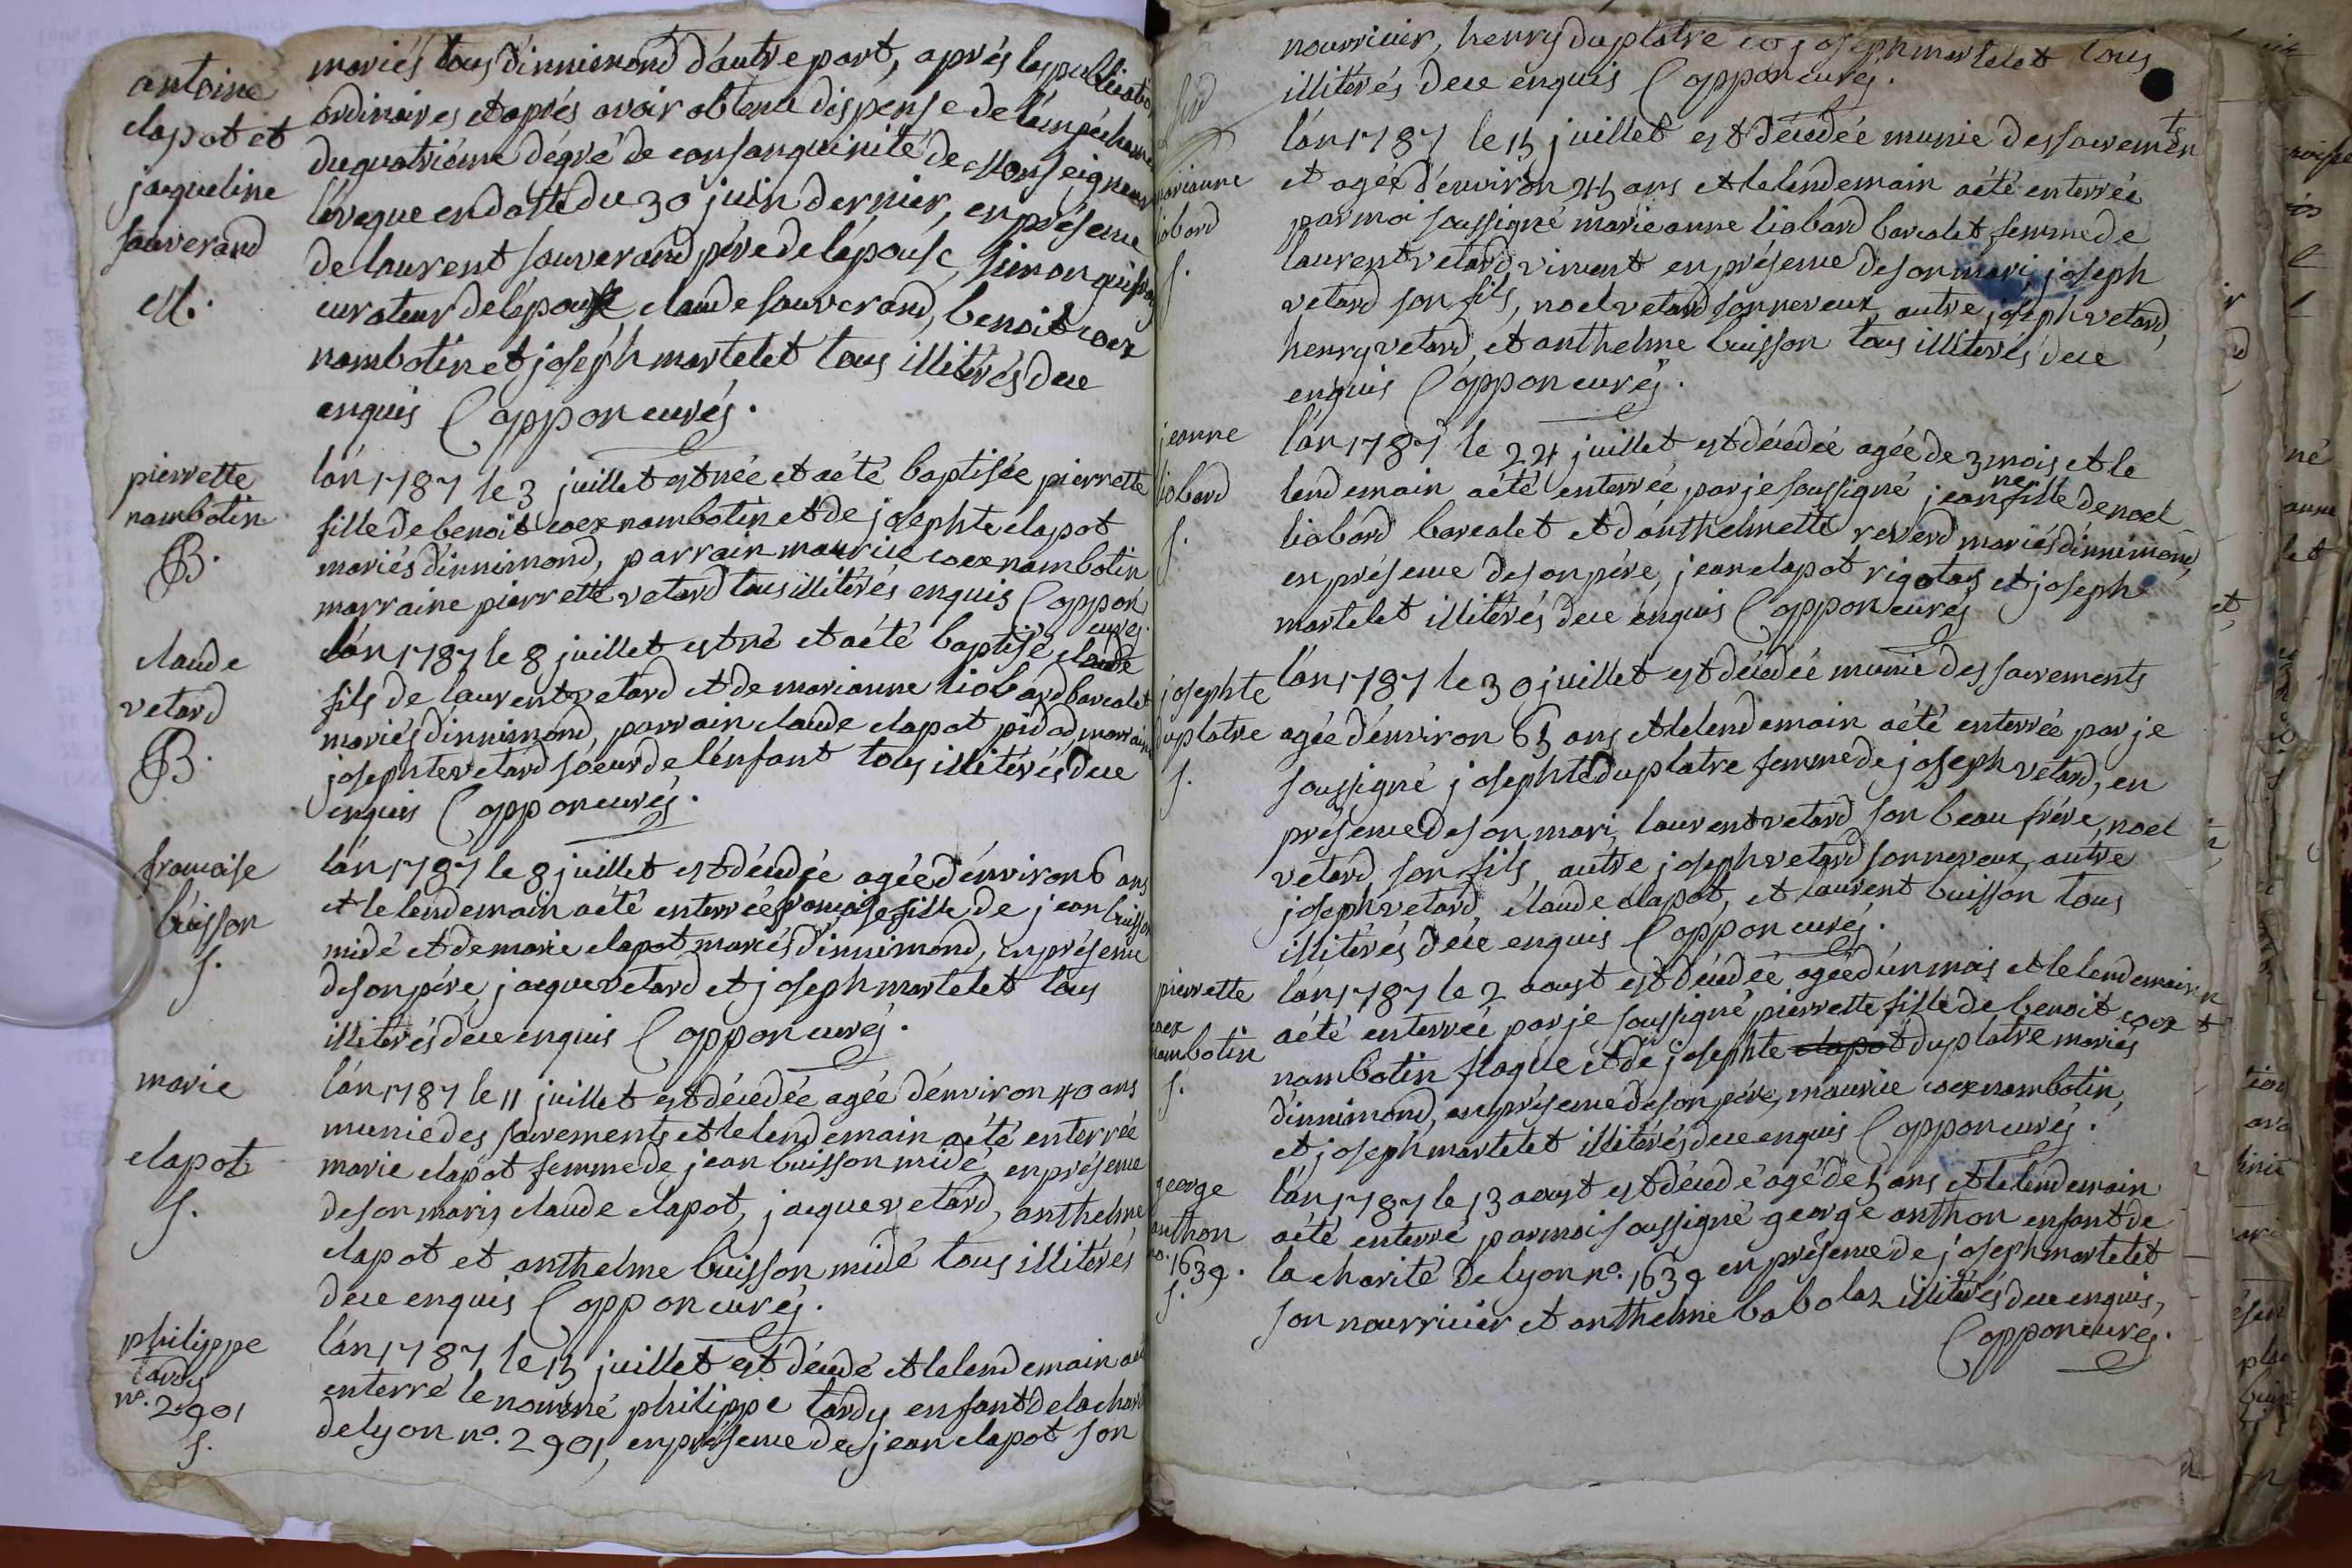 antoine
clapot et
jaqueline
souverand
M.
mariés tous d'innimond d'autre part, aprés les publicatio
ordinaires et aprés avoir obtenu dispense de l'empéchem
du quatriéme dégré de consanguinité de Monseigneur
l'eveque en datte du 30 juin dernier, en présence
de laurent souverand pére de l'épouse, simon
curateur de l'épouse claude souverand, benoit coex
nambotin et joseph martelet tous illitérés de ce
enquis Cappon curé.
pierrette
nambotin
B.
l'an 1787 le 3 juillet est née et a été baptisée pierrette
fille de benoit coex nambotin et de josephte clapot
mariés d'innimond, parrain maurice coex nambotin
marraine pierrette vetard tous illitérés enquis Cappon
curé.
claude
vetard
B.
l'an 1787 le 8 juillet est né et a été baptisé claude
fils de laurent vetard et de marianne liobard barcalet
mariés d'innimond, parrain claude clapot pidod, marraine
josephte vetard soeur de l'enfant tous illitérés de ce
enquis Cappon curé.
francoise
buisson
s.
l'an 1787 le 8 juillet est décedée agée d'environ 6 ans
et le lendemain a été enterrée francoise fille de jean buisson
midé et de marie clapot mariés d'innimond, en présence
de son pére, jacque vetard et joseph martelet tous
illitérés de ce enquis Cappon curé.
marie
clapot
s.
l'an 1787 le 11 juillet est décedée agée d'environ 40 ans
munie des sacrements et le lendemain a été enterrée
marie clapot femme de jean buisson midé, en présence
de son mari, claude clapot, jacque vetard, anthelme
clapot et anthelme buisson midé tous illitérés
de ce enquis Cappon curé.
philippe
tardy
no. 2901
s.
l'an 1787 le 15 juillet est décedé et le lendemain a
enterré le nommé philippe tardy enfant de la char
de lyon no. 2901, en présence de jean clapot son
nourricier, henry duplatre et joseph martelet tous
illitérés de ce enquis Cappon curé.
marianne
liobard
s.
l'an 1787 le 15 juillet est décedée munie des sacrements
et agée d'environ 45 ans et le lendemain a été enterrée
par moi soussigné marie anne liobard barcalet femme de
laurent vetard vincent en présence de son mari, joseph
vetard son fils, noel vetard son neveux, autre joseph vetard,
henry vetard, et anthelme buisson tous illitérés de ce
enquis Cappon curé.
jeanne
liobard
s.
l'an 1787 le 24 juillet est décedée agée de 3 mois et le
lendemain a été enterrée par je soussigné jeanne fille de noel
liobard barcalet et d'anthelmette reverd mariés d'innimond,
en présence de son pére, jean clapot rigotas et joseph
martelet illitérés de ce enquis Cappon curé
josephte
duplatre
s.
l'an 1787 le 30 juillet est décedée munie des sacrements
agée d'environ 65 ans et le lendemain a été enterrée par je
soussigné josephte duplatre femme de joseph vetard, en
présence de son mari, laurent vetard son beau frére, noel
vetard son fils, autre joseph vetard son neveux, autre
joseph vetard, claude clapot, et laurent buisson tous
illitérés de ce enquis Cappon curé.
pierrette
coex
nambotin
s.
l'an 1787 le 2 aoust est décedée agée d'un mois et le lendemain
a été enterrée par je soussigné pierrette fille de benoit coex
nambotin flaque et de josephte clapot duplatre mariés
d'innimond, en présence de son pére, maurice coex nambotin,
et joseph martelet illitérés de ce enquis Cappon curé.
george
anthon
no. 1639.
s.
l'an 1787 le 13 aoust est décedé agé de 5 ans et le lendemain
a été enterré par moi soussigné george anthon enfant de
la charité de lyon no. 1639 en présence de joseph martelet
son nourricier et anthelme babolaz illitérés de ce enquis,
Cappon curé.